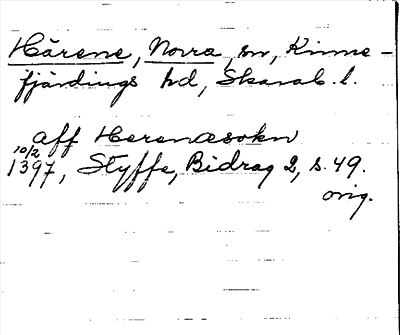 Härene, Norra, sn, Kinne-
fjärdings hd, Skarab. l.
aff Herenæsokn
10/2
1397, Styffe, Bidrag 2, s. 49.
orig.